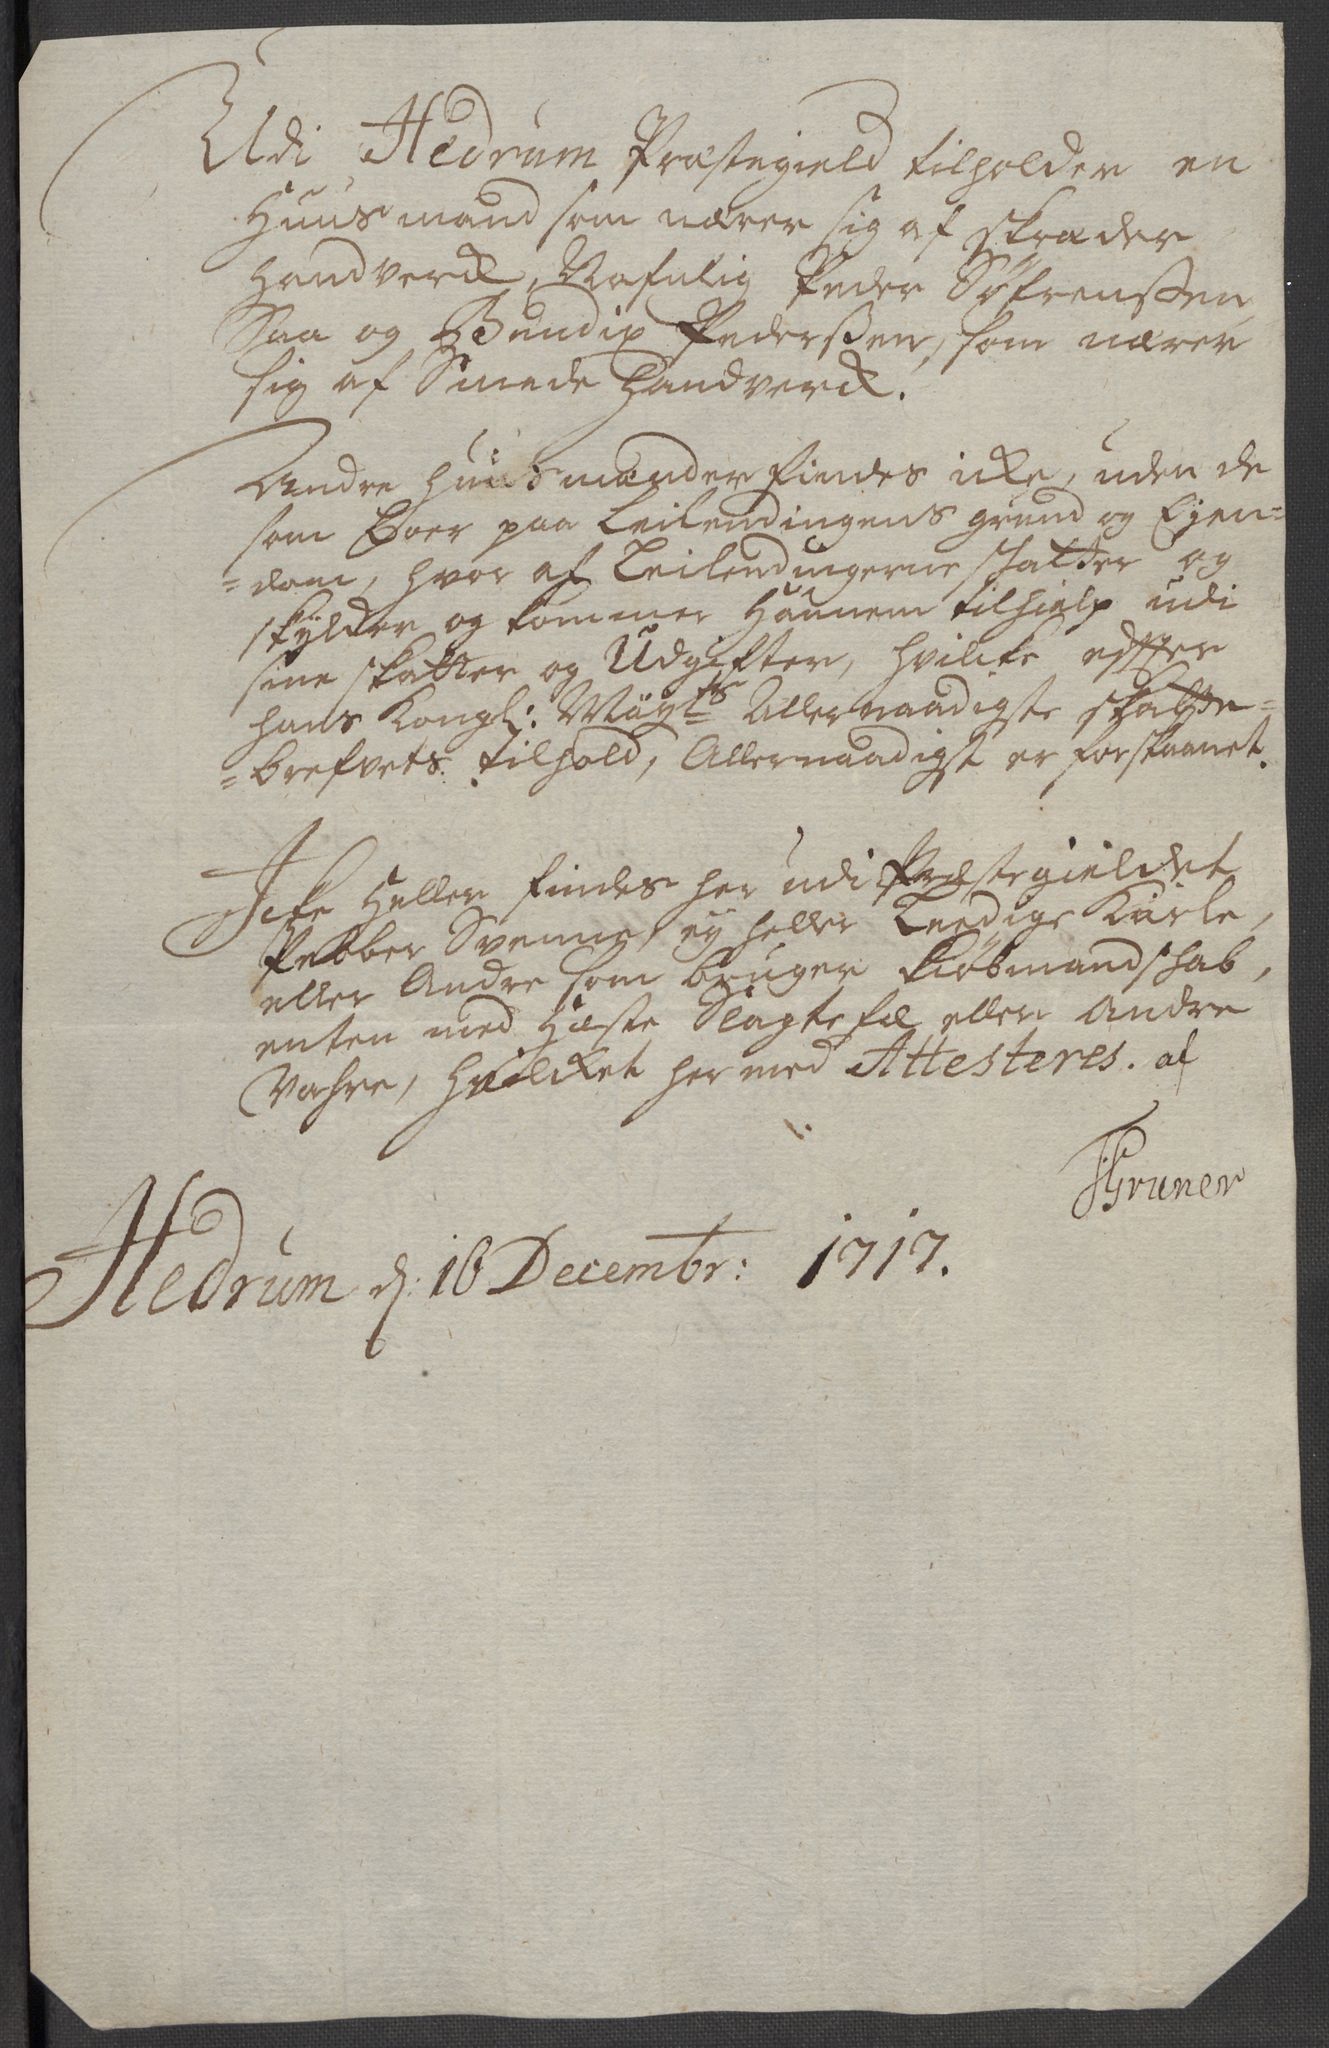 Udi Hedrum Præstegield tilholder en
Huusmand som nærer sig af skræder
Handverck, Nafnlig Peder Søfrenßen
Saa og Bendix Pederßen, som nærer
sig af Smede Handverck.
Andre huusmænder findes icke, uden de
som boer paa Leilendingens grund og Eyen=
=dom, hvor af Leilendingerne skatter og
skylder og kommer Hannem tilhielp udi
sine skatter og Udgifter, hvilcke efter
hans Kongl: Mayts Allernaadigste skatte=
=brefvets tilhold, Allernaadigst er forskaanet.
Icke Heller findes her udi Præstegieldet
Pebber Svenne, ey heller Leedige Karle,
eller Andre som bruger kiøbmandskab,
enten med Heste Slagtefæ eller Andre
Vahre, hvilcket hermed Attesteres. af
Gruner
Hedrum d: 16 Decembr: 1717.